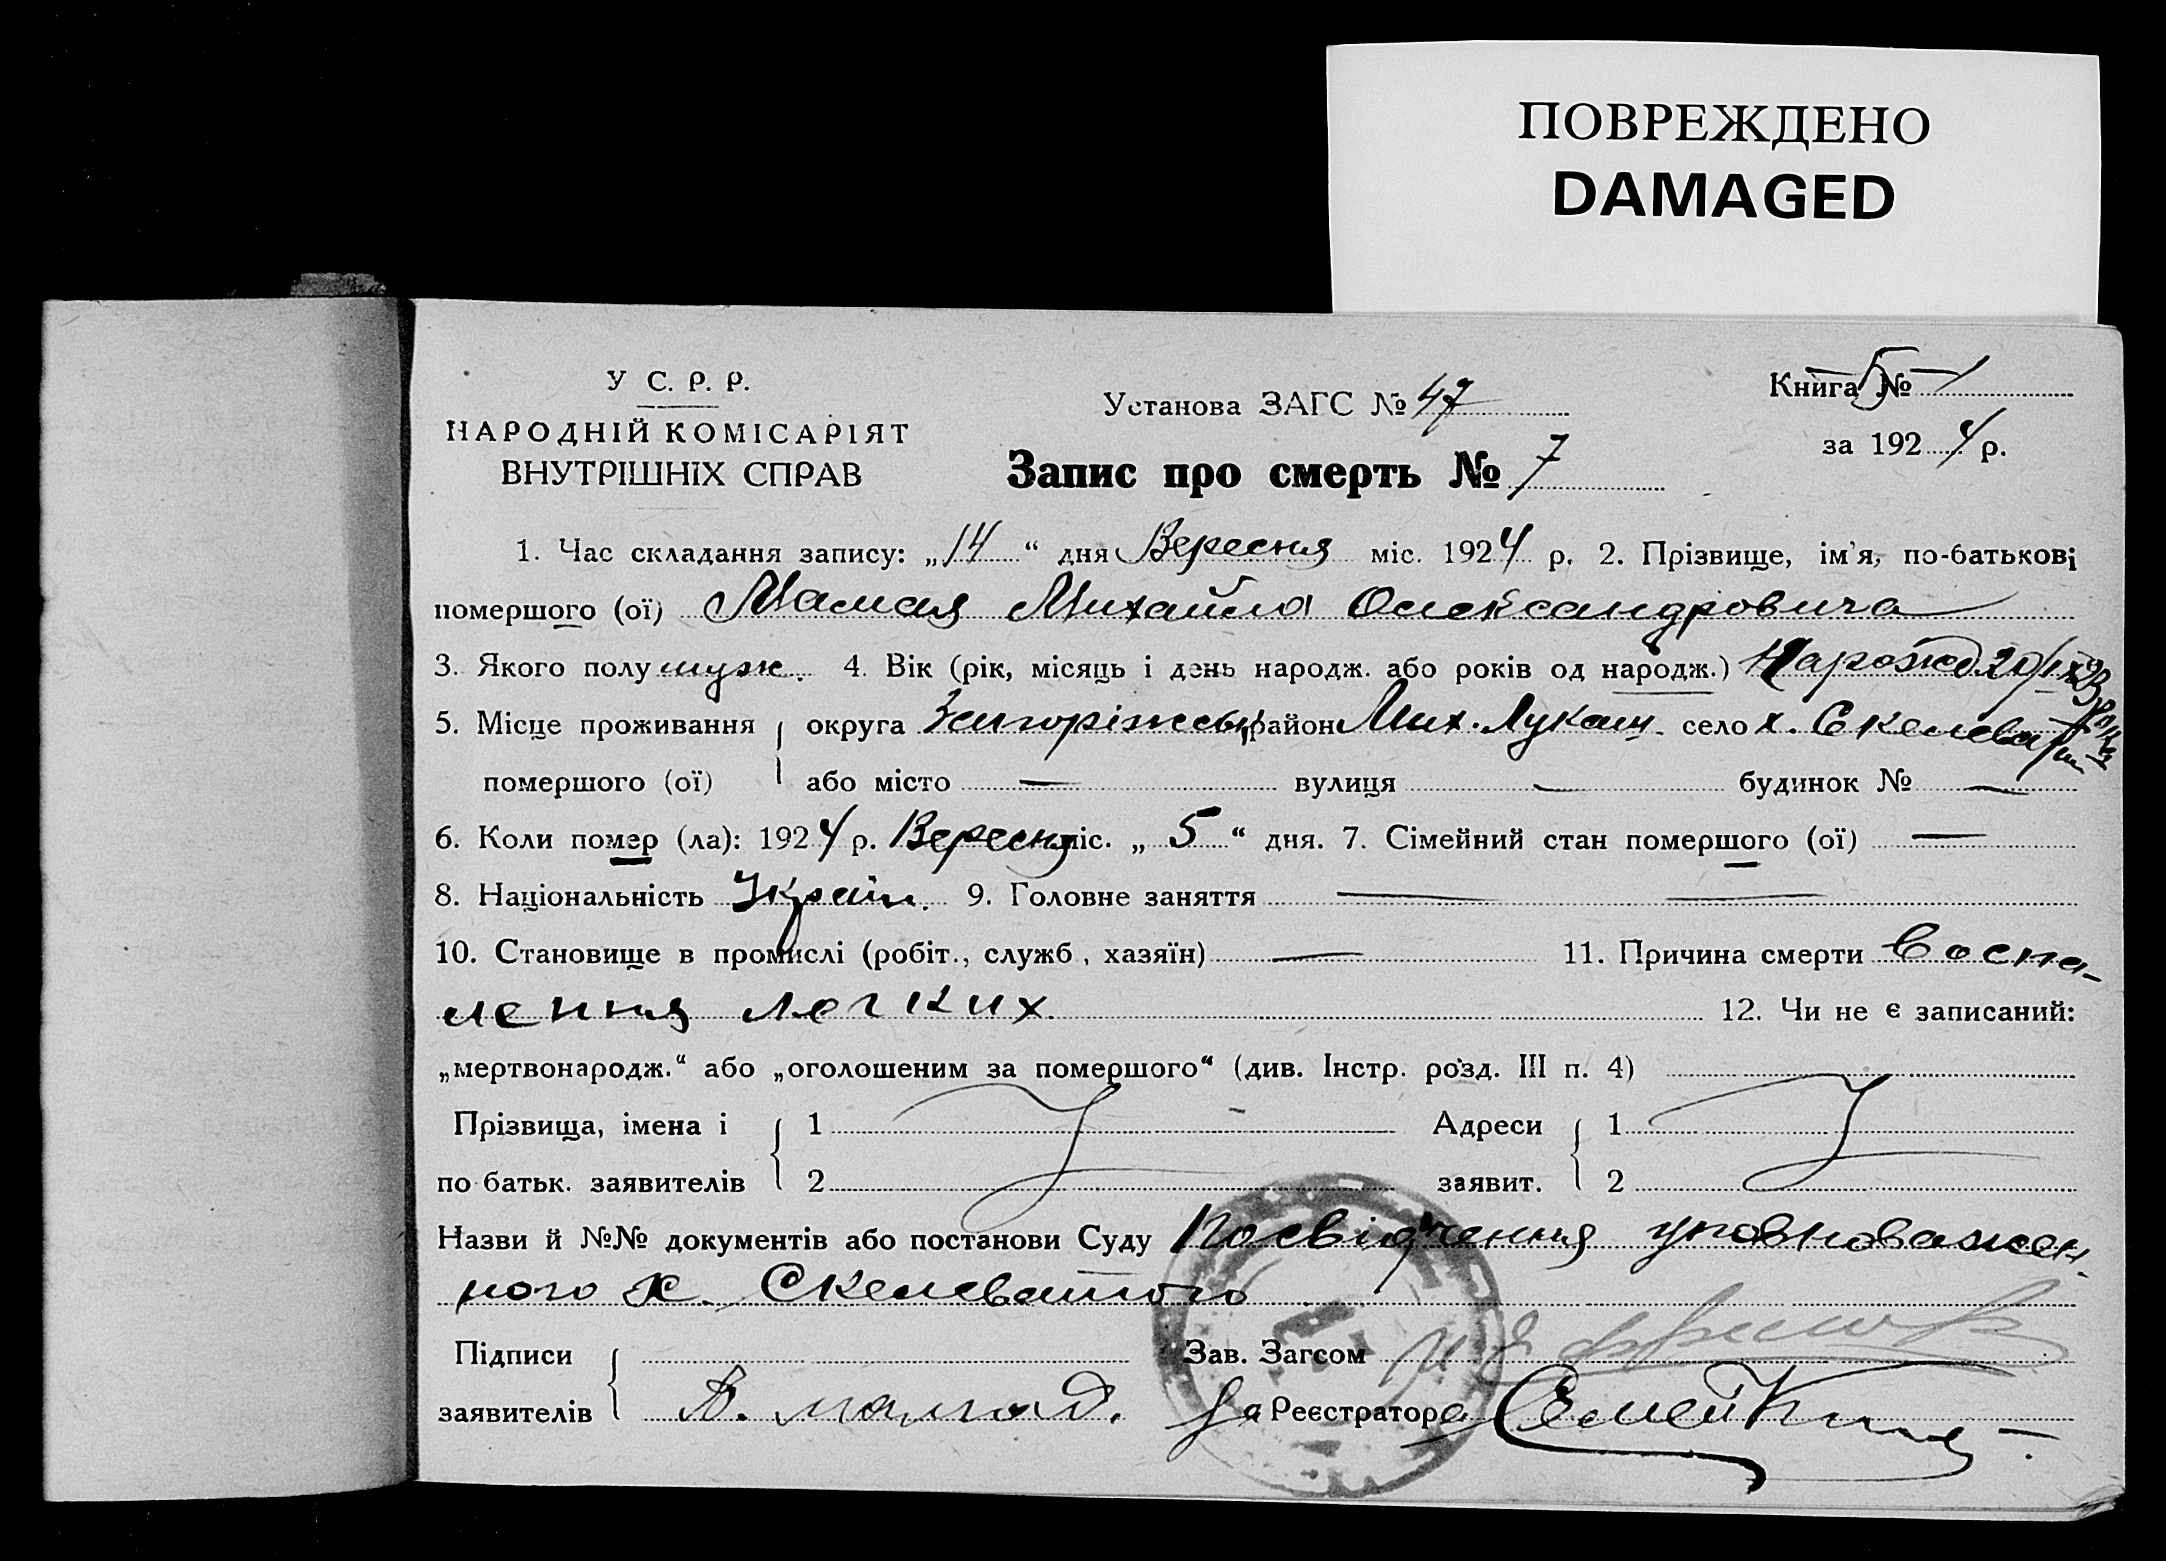 ПОВРЕЖДЕНО
DAMAGED
У С. Р. Р.
НАРОДНІЙ КОМІСАРІЯТ
ВНУТРІШНІХ СПРАВ
Установа ЗАГС № 47
Запис про смерть № 7
Книга № 1
за 1924 р.
1. Час складання запису: „14“ дня Вересня міс. 1924 р. 2. Прізвище, ім'я, по-батькові
помершого (ої) Мамая Михайла Олександровича
3. Якого полу муж. 4. Вік (рік, місяць і день народж. або років од народж.) Нарожд 20/IX 23 року
5. Місце проживання округа Запоріжськ район Мих. Лукаш. село х. Скелеватий
помершого (ої) або місто — вулиця — будинок № —
6. Коли помер (ла): 1924 р. Вересня міс. „5“ дня. 7. Сімейний стан помершого (ої) —
8. Національність Україн. 9. Головне заняття — —
10. Становище в промислі (робіт., служб., хазяїн) — 11. Причина смерти Воспа-
лення легких 12. Чи не є записаний:
„мертвонародж.“ або „оголошеним за помершого“ (див. Інстр. розд. III п. 4)
Прізвища, імена і 1 Адреси 1
по батьк. заявителів 2 заявит. 2
Назви й №№ документів або постанови Суду Посвідчення уповноважен-
ного х. Скелеватого
Підписи Зав. Загсом
заявителів За Реєстратора